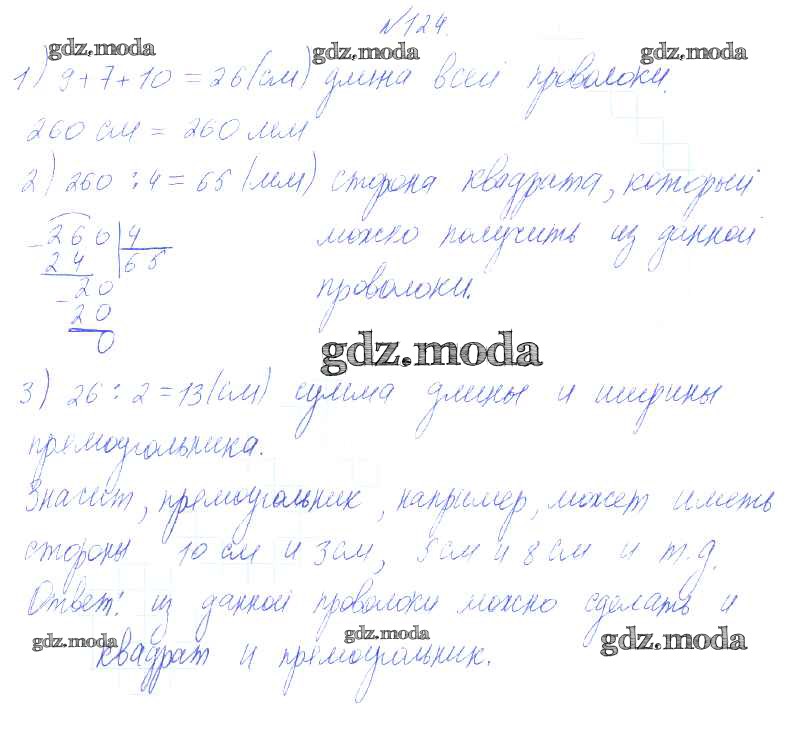 №124.
gdz.moda gdz.moda gdz.moda
1) 9+7+10=26(см) длина всей проволоки.
260 см = 260 мм
2) 260:4=65 (мм) сторона квадрата, который
260 4 можно получить из данной
24 65
20 проволоки.
20
0
gdz.moda
3) 26:2=13(см) сумма длины и ширины
прямоугольника.
Значит, прямоугольник, например, может иметь
стороны 10 см и 3 см, 5 см и 8 см и т.д.
Ответ: из данной проволоки можно сделать и
gdz.moda gdz.moda gdz.moda
квадрат и прямоугольник.